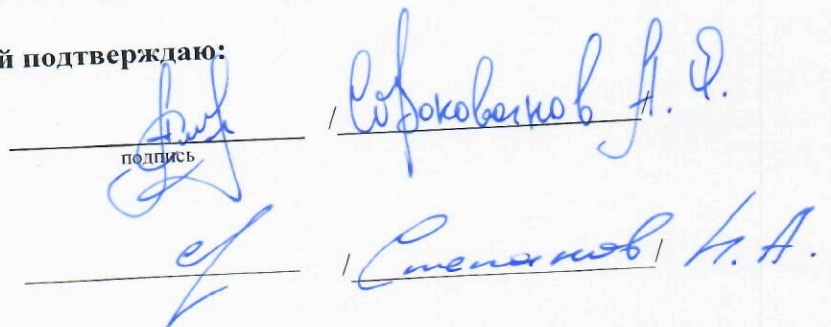 й подтверждаю:
/ Сороковиков А. Ф. /
подпись
/ Степанов / Н. А.